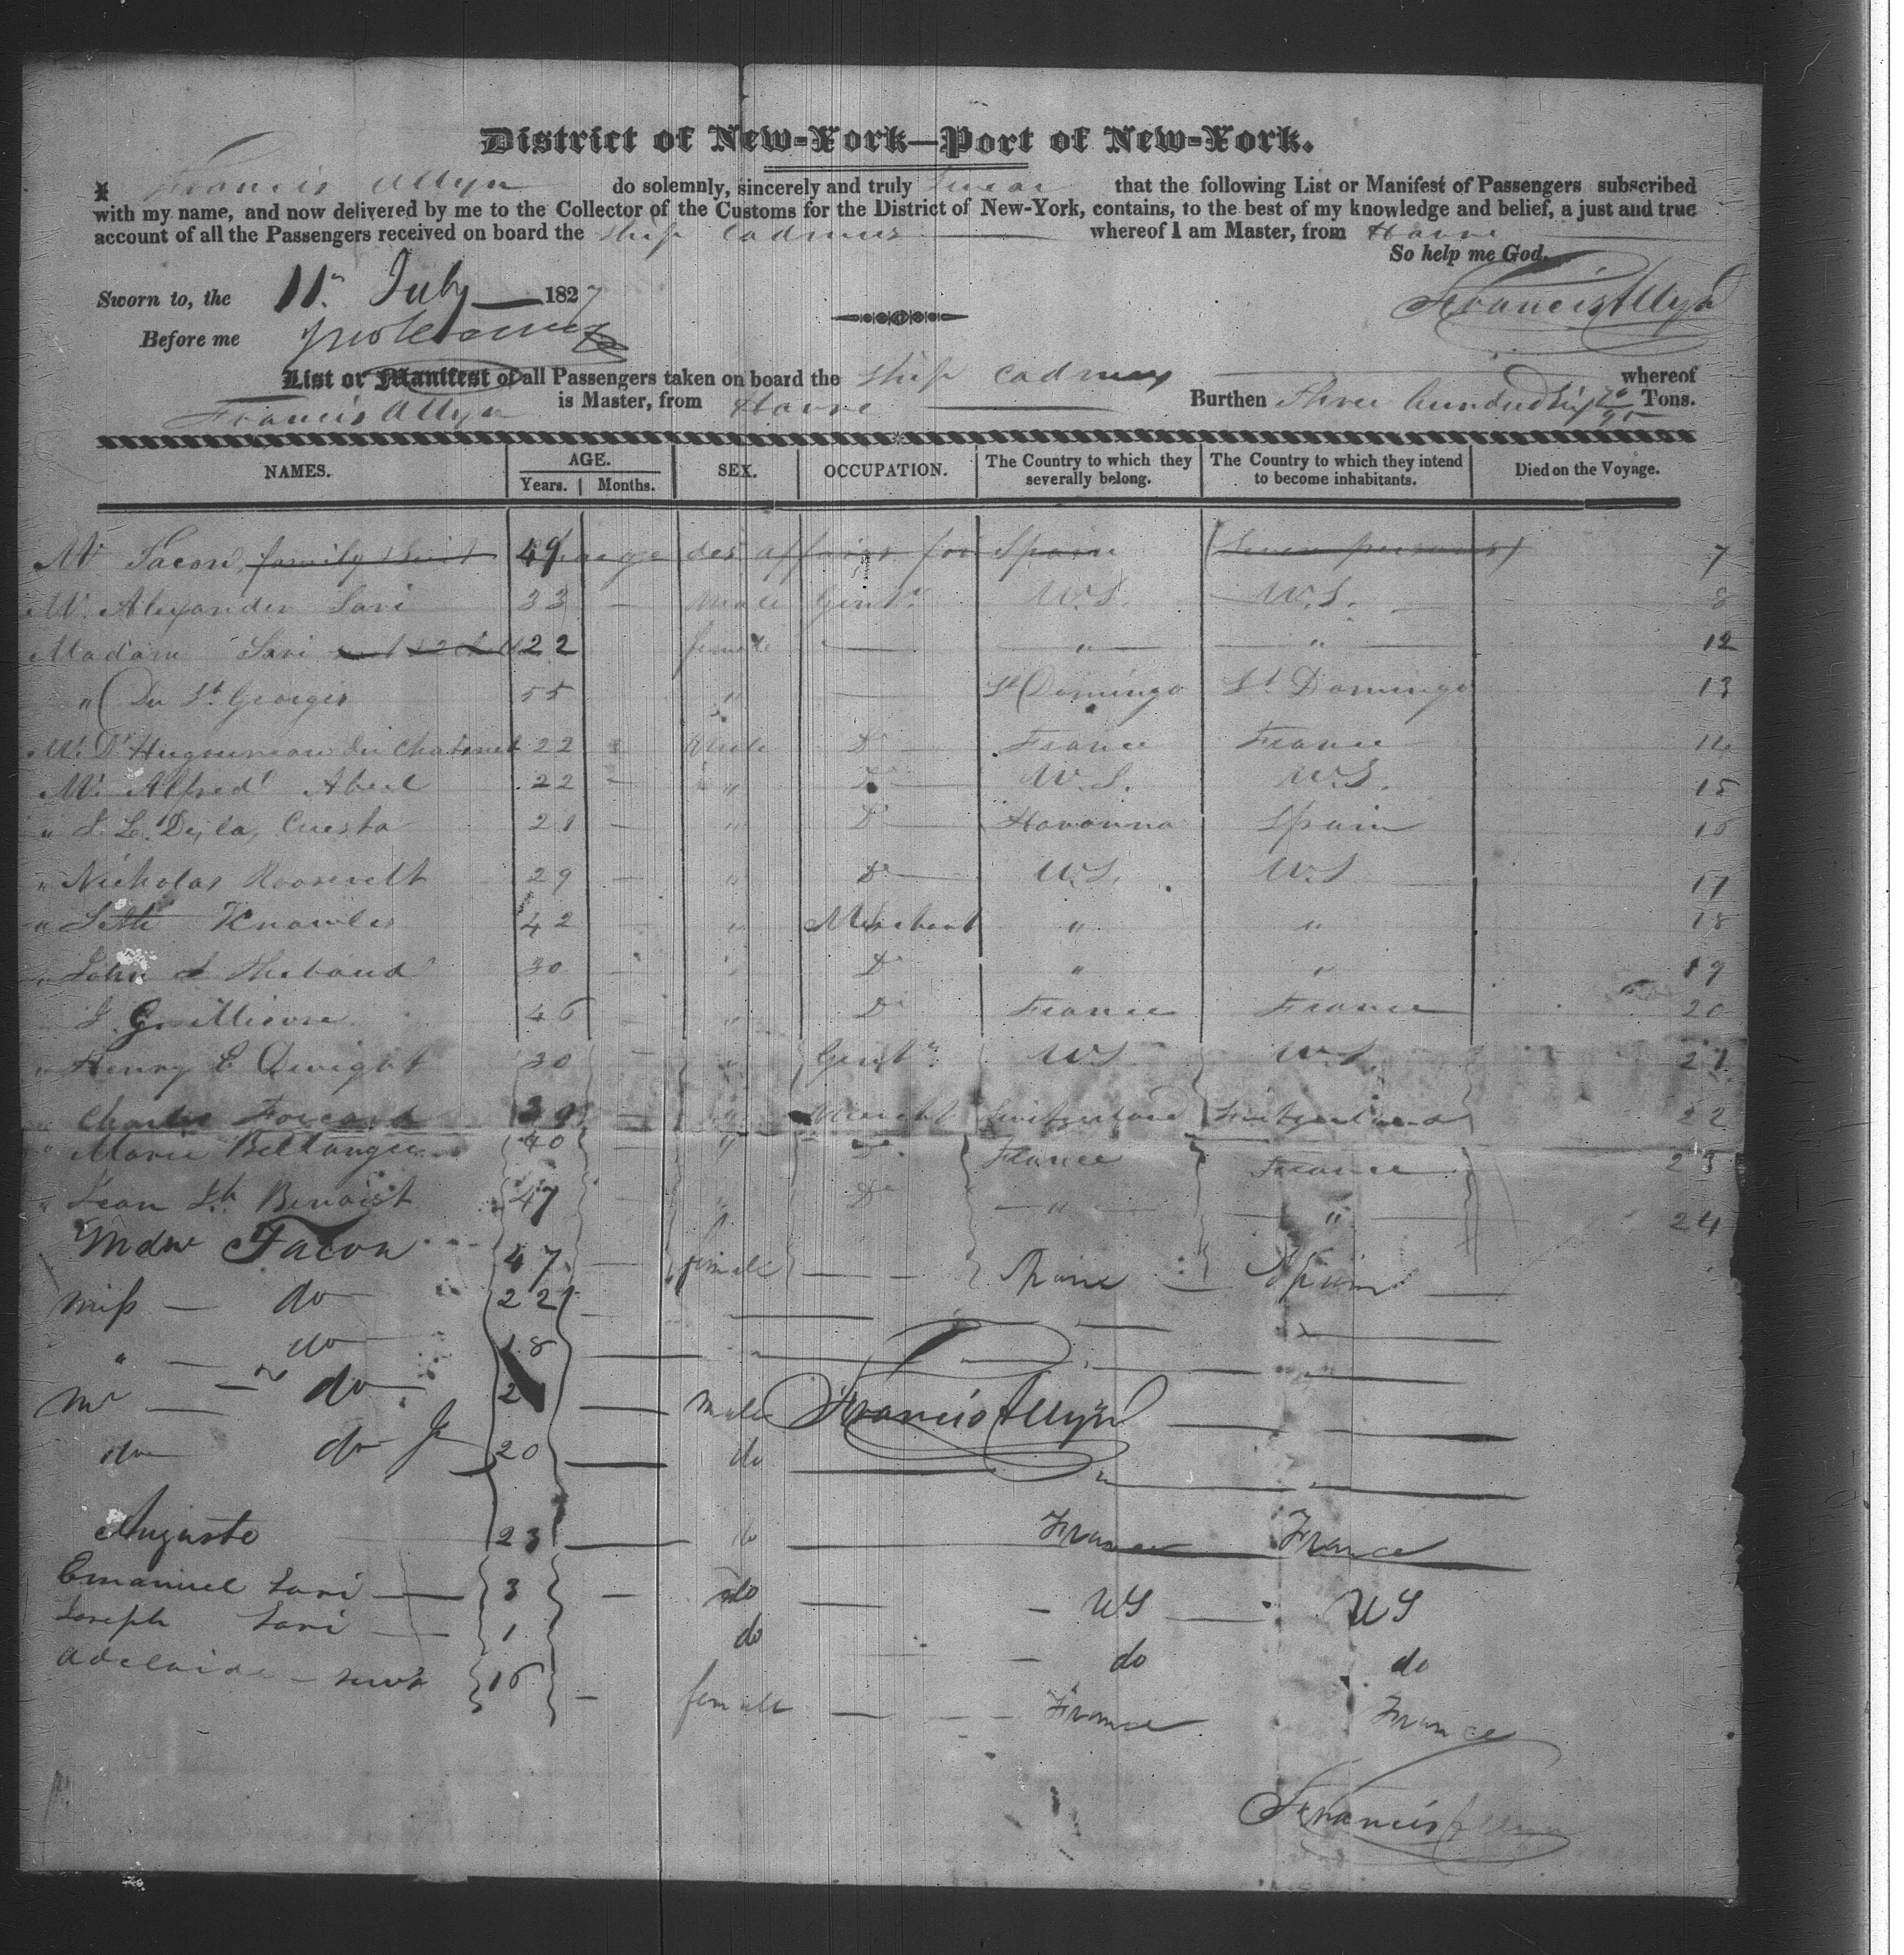 District of New-York—Port of New-York.
I Francis Allyn do solemnly, sincerely and truly swear that the following List or Manifest of Passengers subscribed
with my name, and now delivered by me to the Collector of the Customs for the District of New-York, contains, to the best of my knowledge and belief, a just and true
account of all the Passengers received on board the Ship Cadmus whereof I am Master, from Havre
So help me God.
Sworn to, the 11th July 1827 Francis Allyn
Before me
List or Manifest of all Passengers taken on board the Ship Cadmus whereof
Francis Allyn is Master, from Havre Burthen Three hundred Tons.
NAMES. AGE. Years. Months. SEX. OCCUPATION. The Country to which they severally belong. The Country to which they intend to become inhabitants. Died on the Voyage.
Mr Tacon, family 49 Charge des affairs for Spain (Seven persons) 7
Mr. Alexander Lari 33 — male Gentn. U.S. U.S. 8
Madam Lari 22 female — " — " — 12
" De St. Georges 55 " — St Domingo St Domingo 13
Mr. D' Hugouneau du Chatenet 22 Male Do France France 14
Mr. Alfred Abeel 22 — " Do U.S. U.S. 15
" De la Cuesta 21 — " Do Havanna Spain 16
" Nicholas Roosevelt 29 — " Do U.S. U.S. 17
" Seth Knowles 42 — " Merchant " " 18
" John Thebaud 30 — " Do " " 19
46 — " Do France France 20
" Henry E Dwight 30 — " Gentn. U.S. U.S. 21
" Charles — " Mercht Switzerland Switzerland 22
" Marie Bellanger 40 — " Do France France 23
" Jean Bh. Benoist 47 — " Do — " — — " — 24
Mdme Tacon 47 — female — — Spain — Spain —
Miss — do 22 —
" — do 18 —
Mr — do 2 — male Francis Allyn —
do do Jr 20 — do —
Auguste 23 — do — France France
Emanuel Lari — 3 — do — — US — US
Joseph Lari — 1 do — do do
Adelaide — servt 16 — female — — — France France
Francis Allyn